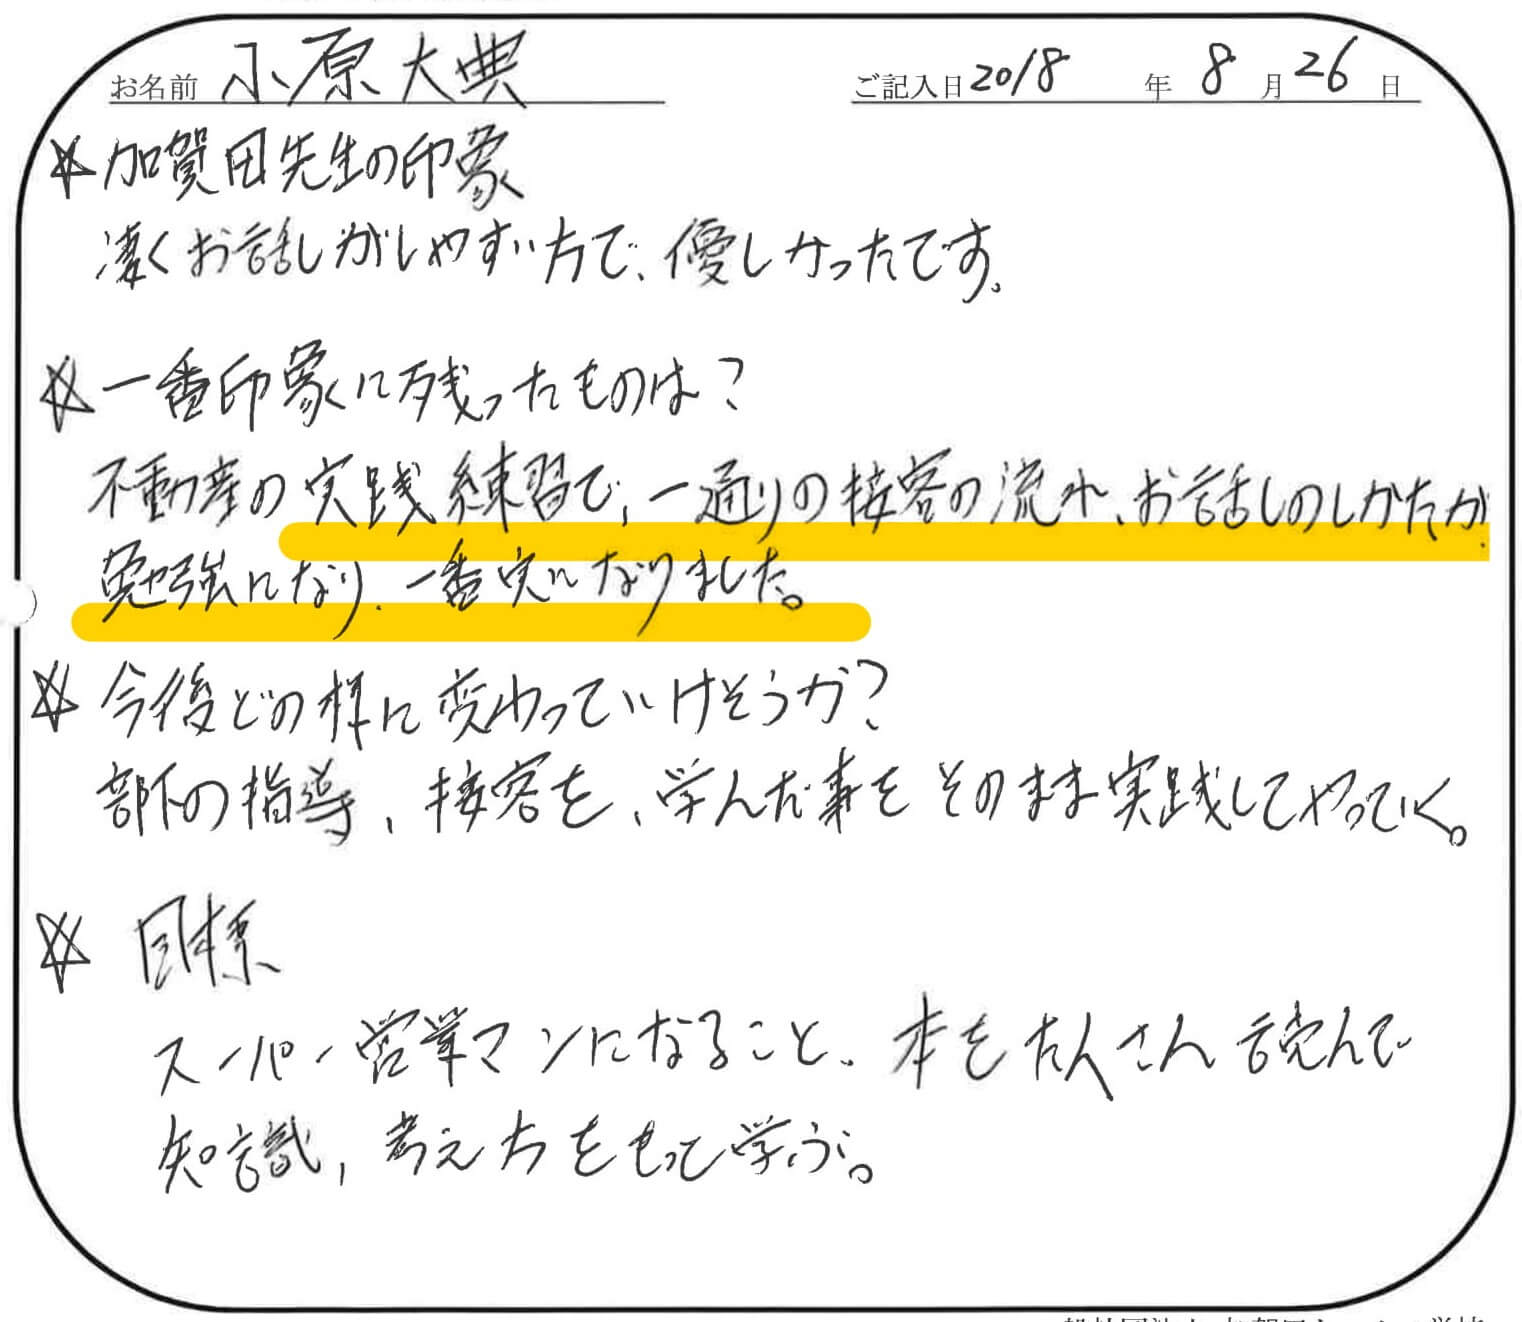 お名前 小原大典 ご記入日 2018 年 8 月 26 日
☆加賀田先生の印象
凄くお話しがしやすい方で、優しかったです。
☆一番印象に残ったものは?
不動産の実践練習で、一通りの接客の流れ、お話しのしかたが
勉強になり、一番実になりました。
☆今後どの様に変わっていけそうか?
部下の指導、接客を、学んだ事をそのまま実践してやっていく。
☆目標
スーパー営業マンになること、本をたくさん読んで
知識、考え方をもって学ぶ。